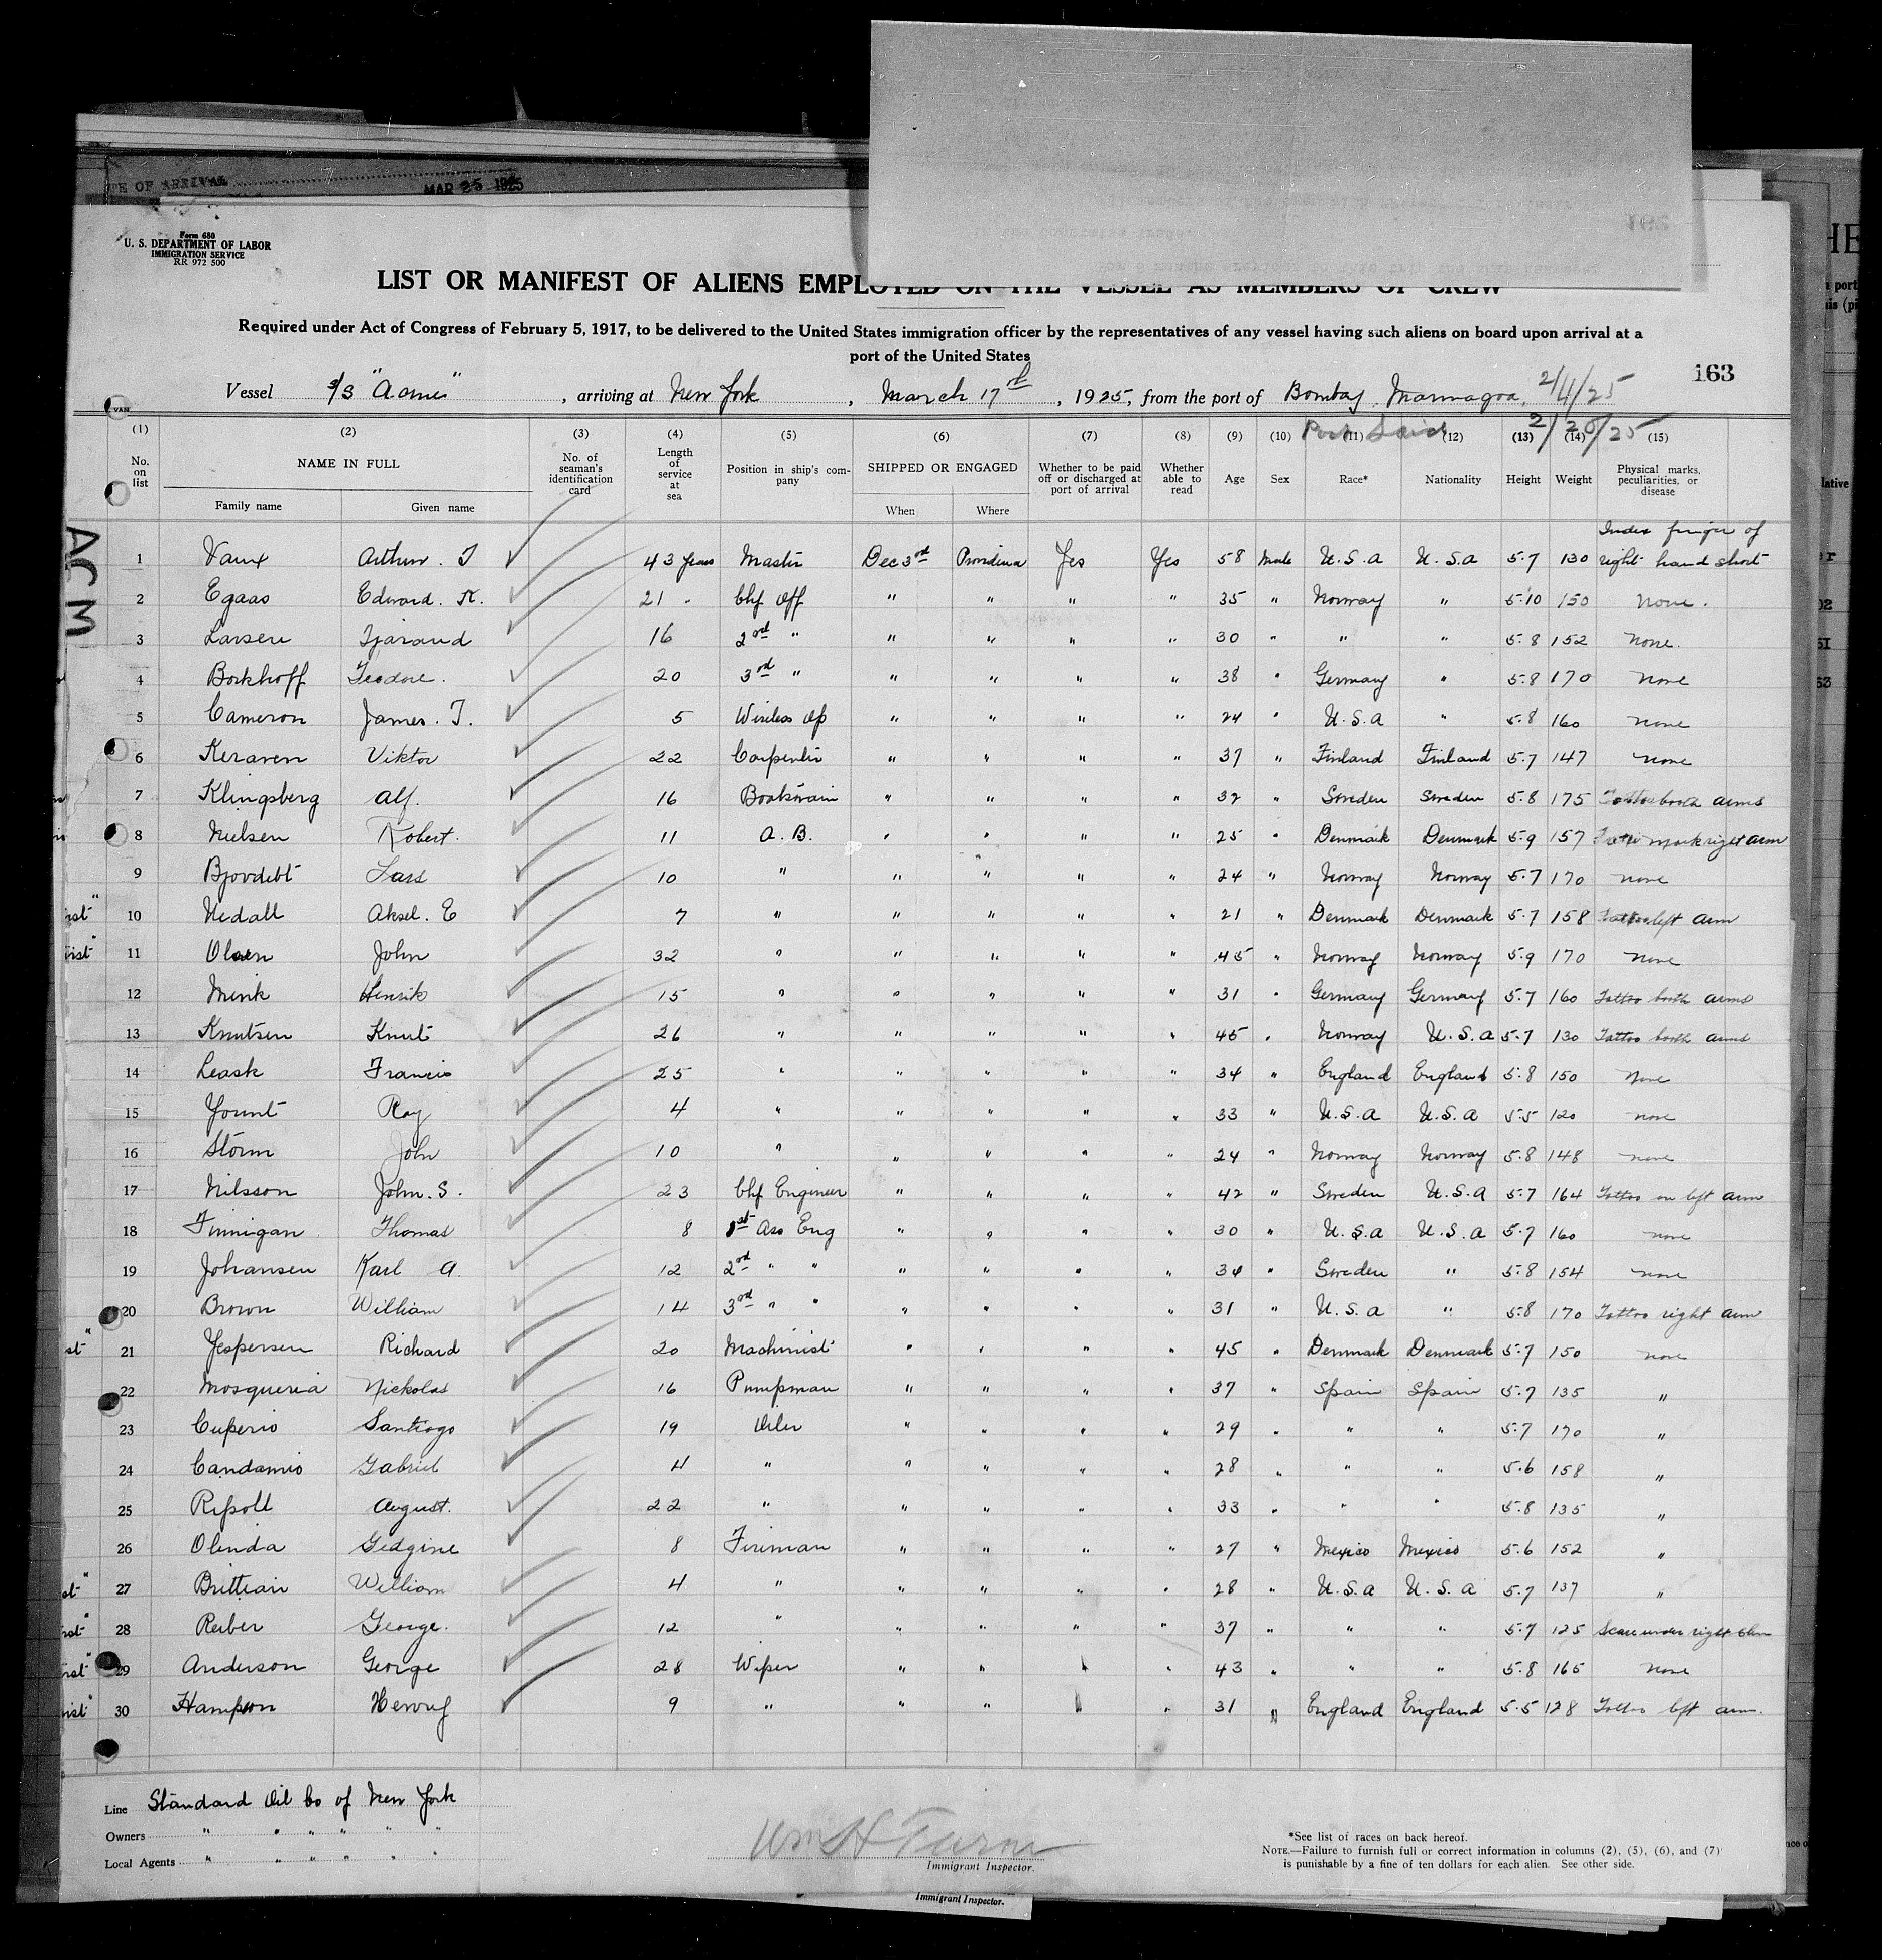 TE OF ARRIVAL MAR 25 1925
Form 680
U. S. DEPARTMENT OF LABOR
IMMIGRATION SERVICE
RR 972 500
LIST OR MANIFEST OF ALIENS EMPLOYED ON THE VESSEL AS MEMBERS OF CREW
Required under Act of Congress of February 5, 1917, to be delivered to the United States immigration officer by the representatives of any vessel having such aliens on board upon arrival at a
port of the United States
163
Vessel S/S "Acme", arriving at New York, March 17rd, 1925, from the port of Bombay, Marmagoa, 2/4/25
Port Said 2/20/25
(1) (2) (3) (4) (5) (6) (7) (8) (9) (10) (11) (12) (13) (14) (15)
No. on list NAME IN FULL No. of seaman's identification card Length of service at sea Position in ship's company SHIPPED OR ENGAGED Whether to be paid off or discharged at port of arrival Whether able to read Age Sex Race* Nationality Height Weight Physical marks, peculiarities, or disease
Family name Given name When Where
ACM
Index finger of
1 Vaux Arthur. T 43 years Master Dec 3rd Providence Yes Yes 58 Male U.S.a U.S.a 5.7 130 right hand short
2 Egaas Edward. K. 21 " Chf Off " " " " 35 " Norway " 5.10 150 None.
3 Larsen Tjärand 16 2rd " " " " " 30 " " " 5.8 152 None.
4 Borkhoff Teodore. 20 3rd " " " " " 38 " Germany " 5.8 170 None
5 Cameron James. T. 5 Wireless Op " " " " 24 " U.S.a " 5.8 160 none
6 Keranen Viktor 22 Carpenter " " " " 37 " Finland Finland 5.7 147 none
7 Klingsberg Alf. 16 Boatswain " " " " 32 " Sweden Sweden 5.8 175 Tattoo booth arms
8 Nielsen Robert. 11 A.B. " " " " 25 " Denmark Denmark 5.9 157 mark right arm
9 Lars 10 " " " " " 24 " Norway Norway 5.7 170 none
10 Nedall Aksel. E 7 " " " " " 21 " Denmark Denmark 5.7 158 Tattoo left arm
11 Olsen John 32 " " " " " 45 " Norway Norway 5.9 170 none
12 Menk Henrik 15 " " " " " 31 " Germany Germany 5.7 160 Tattoo booth arms
13 Knutsen Knut 26 " " " " " 45 " Norway U.S.a 5.7 130 Tattoo booth arms
14 Leask Francis 25 " " " " " 34 " England England 5.8 150 none
15 Yount Ray 4 " " " " " 33 " U.S.a U.S.a 5.5 120 none
16 Storm John 10 " " " " " 24 " Norway Norway 5.8 148 none
17 Nilsson John. S. 23 Chf Engineer " " " " 42 " Sweden U.S.a 5.7 164 Tattoo on left arm
18 Finnigan Thomas 8 1st Ass Eng " " " " 30 " U.S.a U.S.a 5.7 160 none
19 Johansen Karl A. 12 2rd " " " " " " 34 " Sweden " 5.8 154 none
20 Brown William 14 3rd " " " " " " 31 " U.S.a " 5.8 170 Tattoo right arm
21 Jespersen Richard 20 Machinist " " " " 45 " Denmark Denmark 5.7 150 none
22 Mosqueria Nickolas 16 Pumpman " " " " 37 " Spain Spain 5.7 135 "
23 Cuperio Santiago 19 Oiler " " " " 29 " " " 5.7 170 "
24 Candamio Gabriel 4 " " " " " 28 " " " 5.6 158 "
25 Ripoll August. 22 " " " " " 33 " " " 5.8 135 "
26 Olinda Gedgine 8 Fireman " " " " 27 " Mexico Mexico 5.6 152 "
27 Brittian William 4 " " " " " 28 " U.S.a U.S.a 5.7 137 "
28 Reiber George. 12 " " " " " 37 " " " 5.7 125 Scare under right
29 Anderson George 28 Wiper " " " " 43 " " " 5.8 165 none
30 Hampson 9 " " " " " 31 " England England 5.5 128 Tattoo left arm.
Line Standard Oil Co of New York
Owners " " " " " "
Local Agents " " " " " "
Wm H Turner
Immigrant Inspector.
*See list of races on back hereof.
NOTE.—Failure to furnish full or correct information in columns (2), (5), (6), and (7)
is punishable by a fine of ten dollars for each alien. See other side.
Immigrant Inspector.